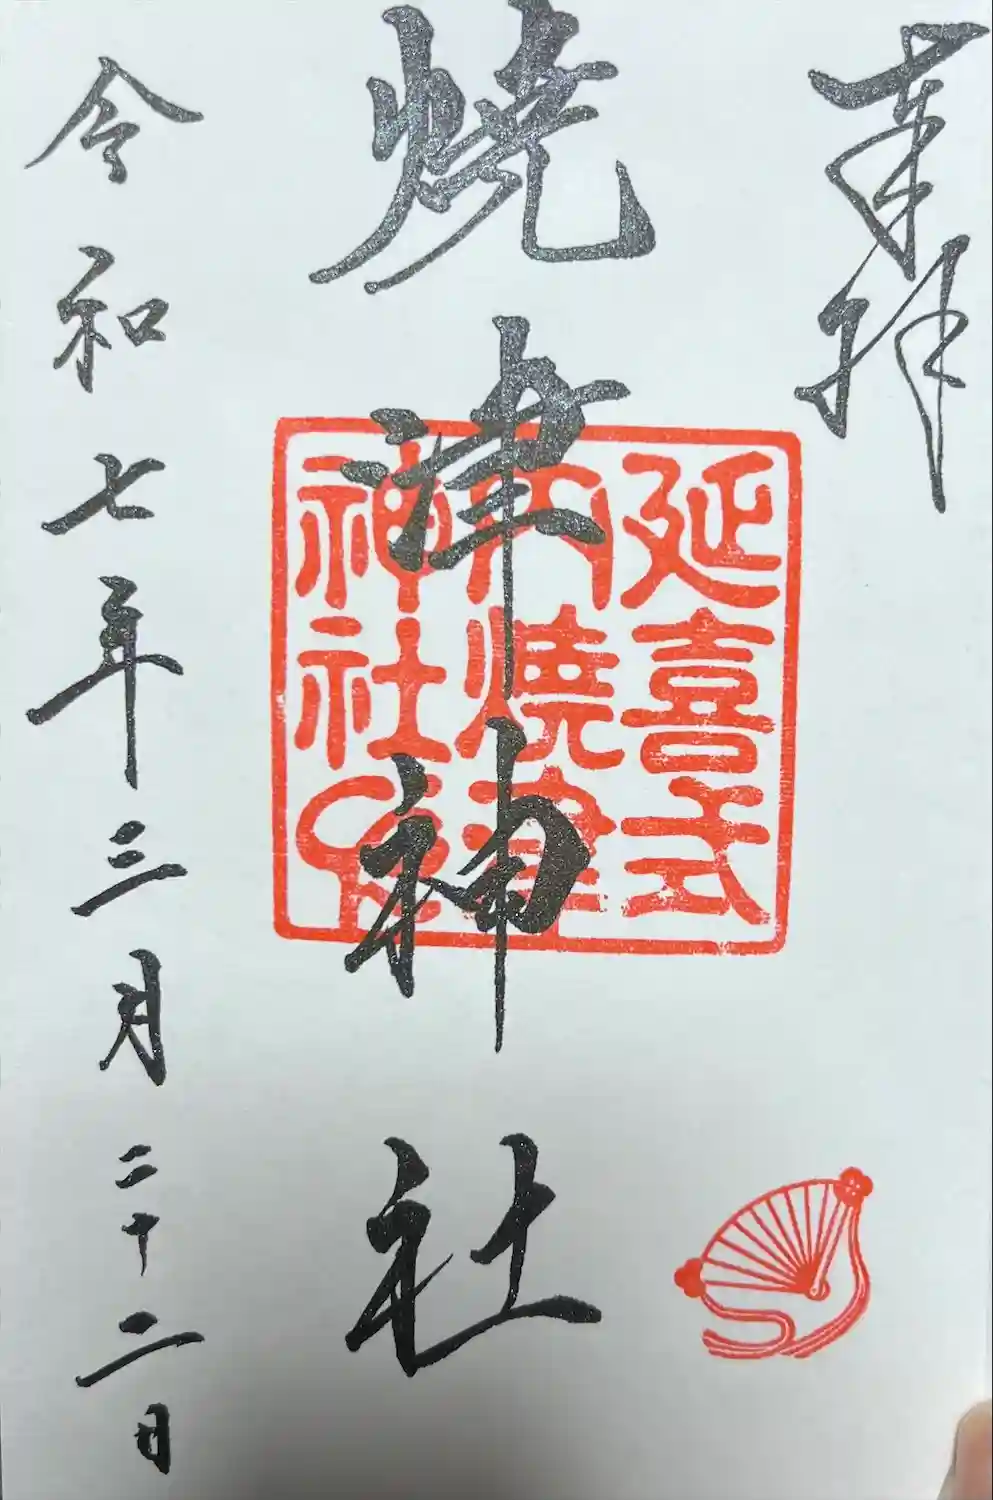 奉拝
焼津神社
延喜式
内焼津
神社
令和七年三月二十二日